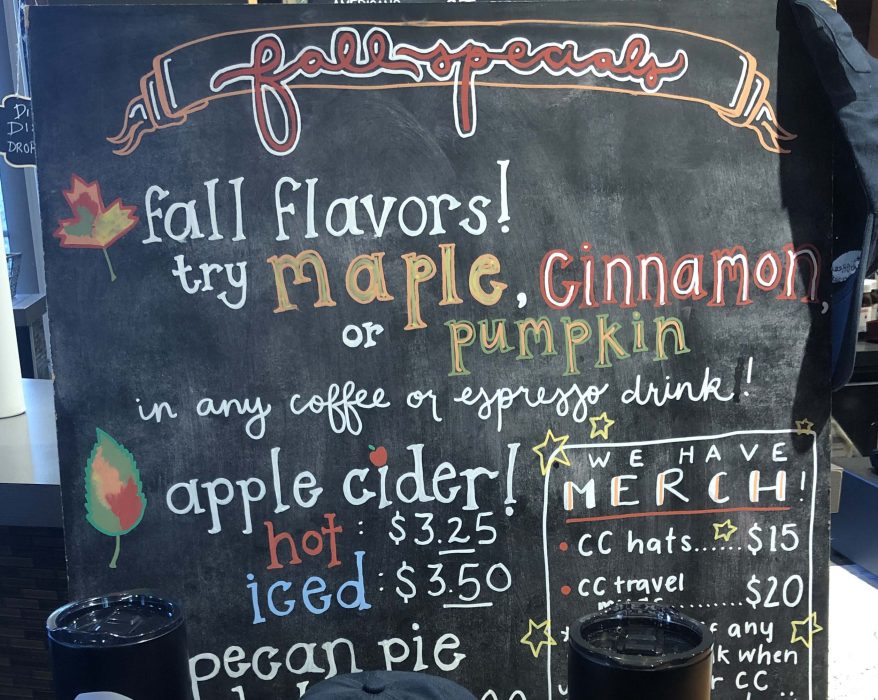 fall specials
fall flavors!
try maple, cinnamon,
or pumpkin
in any coffee or espresso drink!
apple cider!
hot: $3.25
iced: $3.50
pecan pie
WE HAVE
MERCH!
• CC hats......$15
• CC travel
.........$20
any
when
CC